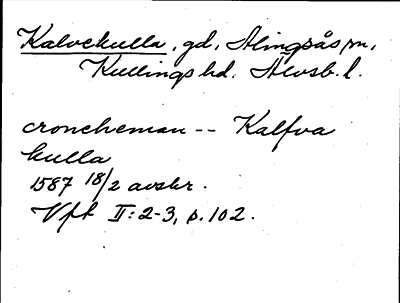 Kalvekulla, gd, Alingsås sn,
Kullings hd. Älvsb. l.
croncheman -- Kalfva
kulla
1587 18/2 avskr.
Vft II: 2-3, s. 102.